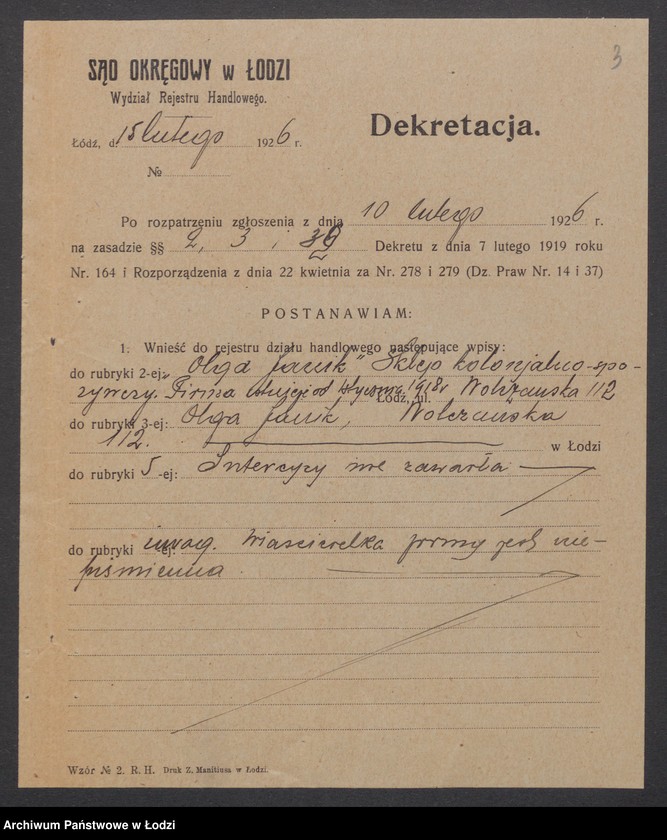 3
SĄD OKRĘGOWY w ŁODZI
Wydział Rejestru Handlowego.
Dekretacja.
Łódź, d. 15 lutego 1926 r.
№
Po rozpatrzeniu zgłoszenia z dnia 10 lutego 1926 r.
na zasadzie §§ 2, 3 i Dekretu z dnia 7 lutego 1919 roku
Nr. 164 i Rozporządzenia z dnia 22 kwietnia za Nr. 278 i 279 (Dz. Praw Nr. 14 i 37)
POSTANAWIAM:
1. Wnieść do rejestru działu handlowego następujące wpisy:
do rubryki 2-ej: „Olga Janik" Sklep kolonjalno-spo-
żywczy. Firma istnieje od stycznia 1918 r Łódź, ul. Wólczańska 112
do rubryki 3-ej: Olga Janik, Wólczańska
112. w Łodzi
do rubryki 5-ej: Intercyzy nie zawarła
do rubryki uwag. -ej: Właścicielka firmy jest nie-
piśmienna.
Wzór № 2. R. H. Druk Z. Manitiusa w Łodzi.
Archiwum Państwowe w Łodzi